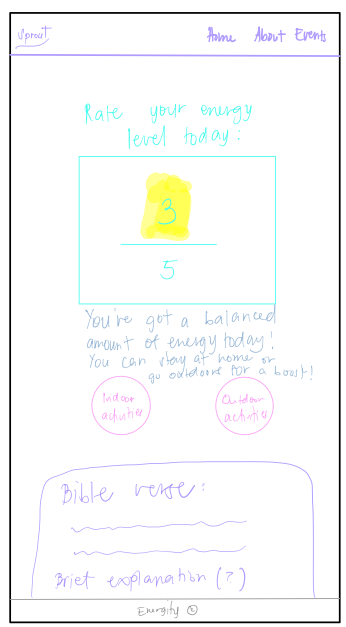 Sprout
Home About Events
Rate your energy
level today:
3
5
You've got a balanced
amount of energy today!
You can stay at home or
go outdoors for a boost!
Indoor
activities
Outdoor
activities
Bible verse:
Brief explanation (?)
Energify